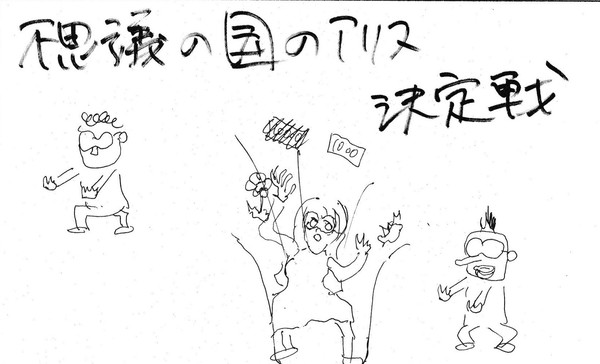 不思議の国のアリス
決定戦
100